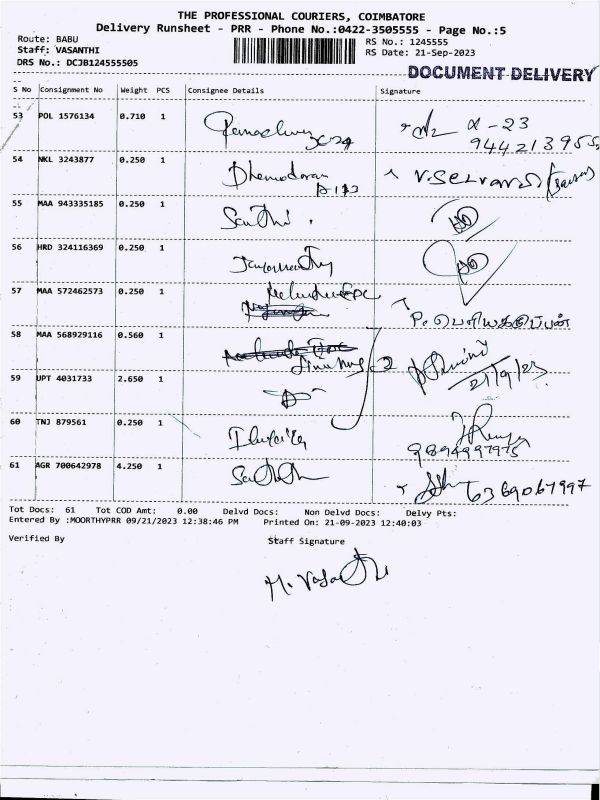 THE PROFESSIONAL COURIERS, COIMBATORE
Delivery Runsheet - PRR - Phone No.:0422-3505555 - Page No.:5
Route: BABU
RS No.: 1245555
Staff: VASANTHI
RS Date: 21-Sep-2023
DRS No.: DCJB124555505
DOCUMENT DELIVERY
S No Consignment No Weight PCS Consignee Details Signature
53 POL 1576134 0.710 1
54 NKL 3243877 0.250 1
55 MAA 943335185 0.250 1 Santhi
56 HRD 324116369 0.250 1
57 MAA 572462573 0.250 1
58 MAA 568929116 0.560 1
21/9/23
59 UPT 4031733 2.650 1
60 TNJ 879561 0.250 1
9894997975
61 AGR 700642978 4.250 1
6369067997
Tot Docs: 61 Tot COD Amt: 0.00 Delvd Docs: Non Delvd Docs: Delvy Pts:
Entered By :MOORTHYPRR 09/21/2023 12:38:46 PM Printed On: 21-09-2023 12:40:03
Verified By Staff Signature